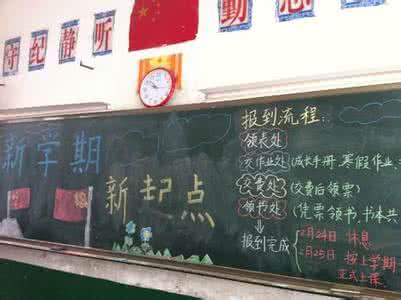 守纪静听
勤
新学期
新起点
报到流程：
领表处
交作业处（成长手册、寒假作业、
交费处（交费后领票）
领书处（凭票领书，书本共
报到完成
2月24日 休息
2月25日 按上学期
正式上课